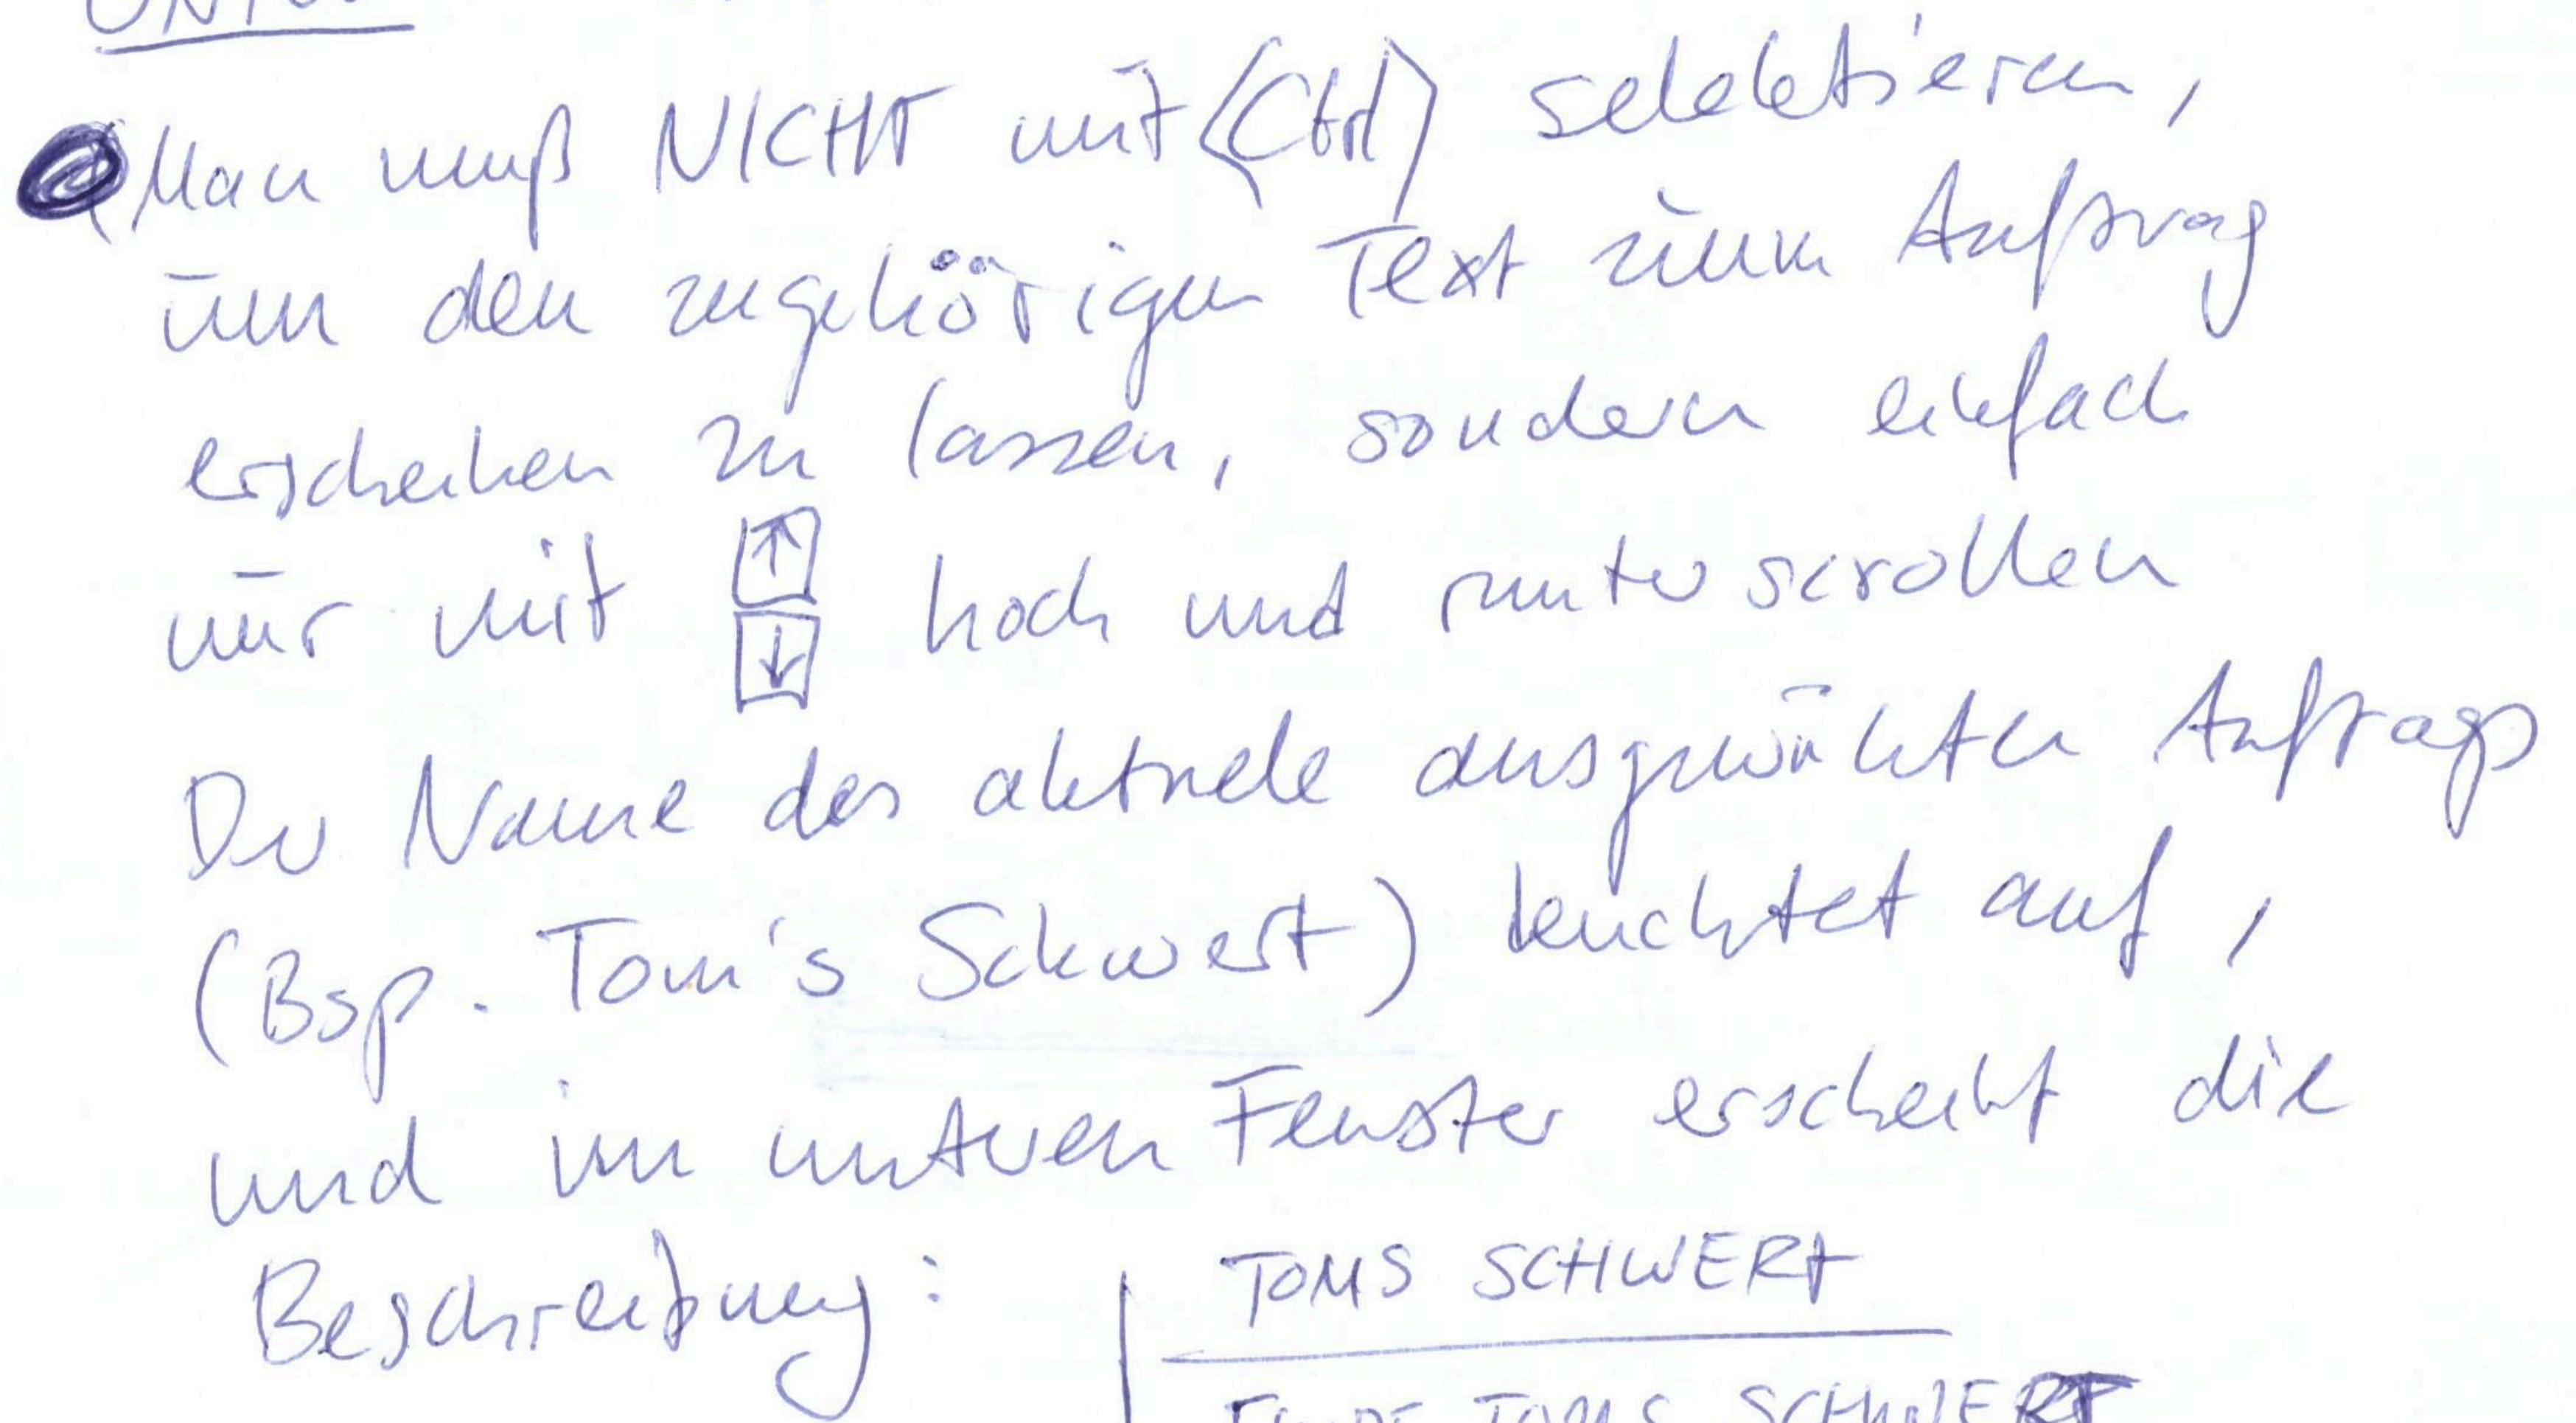 Man muß NICHT mit <Ctrl> selektieren,
um den zugehörigen Text zum Auftrag
erscheinen zu lassen, sondern einfach
nur mit ↑ ↓ hoch und runter scrollen
Der Name des aktuell ausgewählten Auftrags
(Bsp. Tom's Schwert) leuchtet auf,
und im unteren Fenster erscheint die
Beschreibung:
TOMS SCHWERT
TOMS SCHWERT